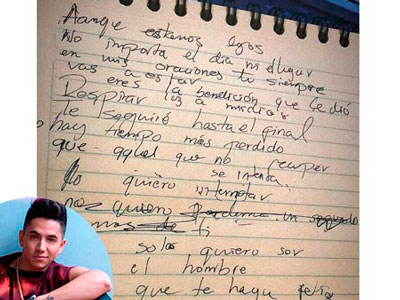 Aunque estamos lejos
No importa el día ni el lugar
en mis oraciones tu siempre
vas a estar
eres la bendición que le dió
Respirar a mi
te seguiré hasta el final
hay tiempo más perdido
que aquel que no
se intenta
yo quiero intentar
no quiero un segundo
mas de ti
solo quiero ser
el hombre
que te haga feliz